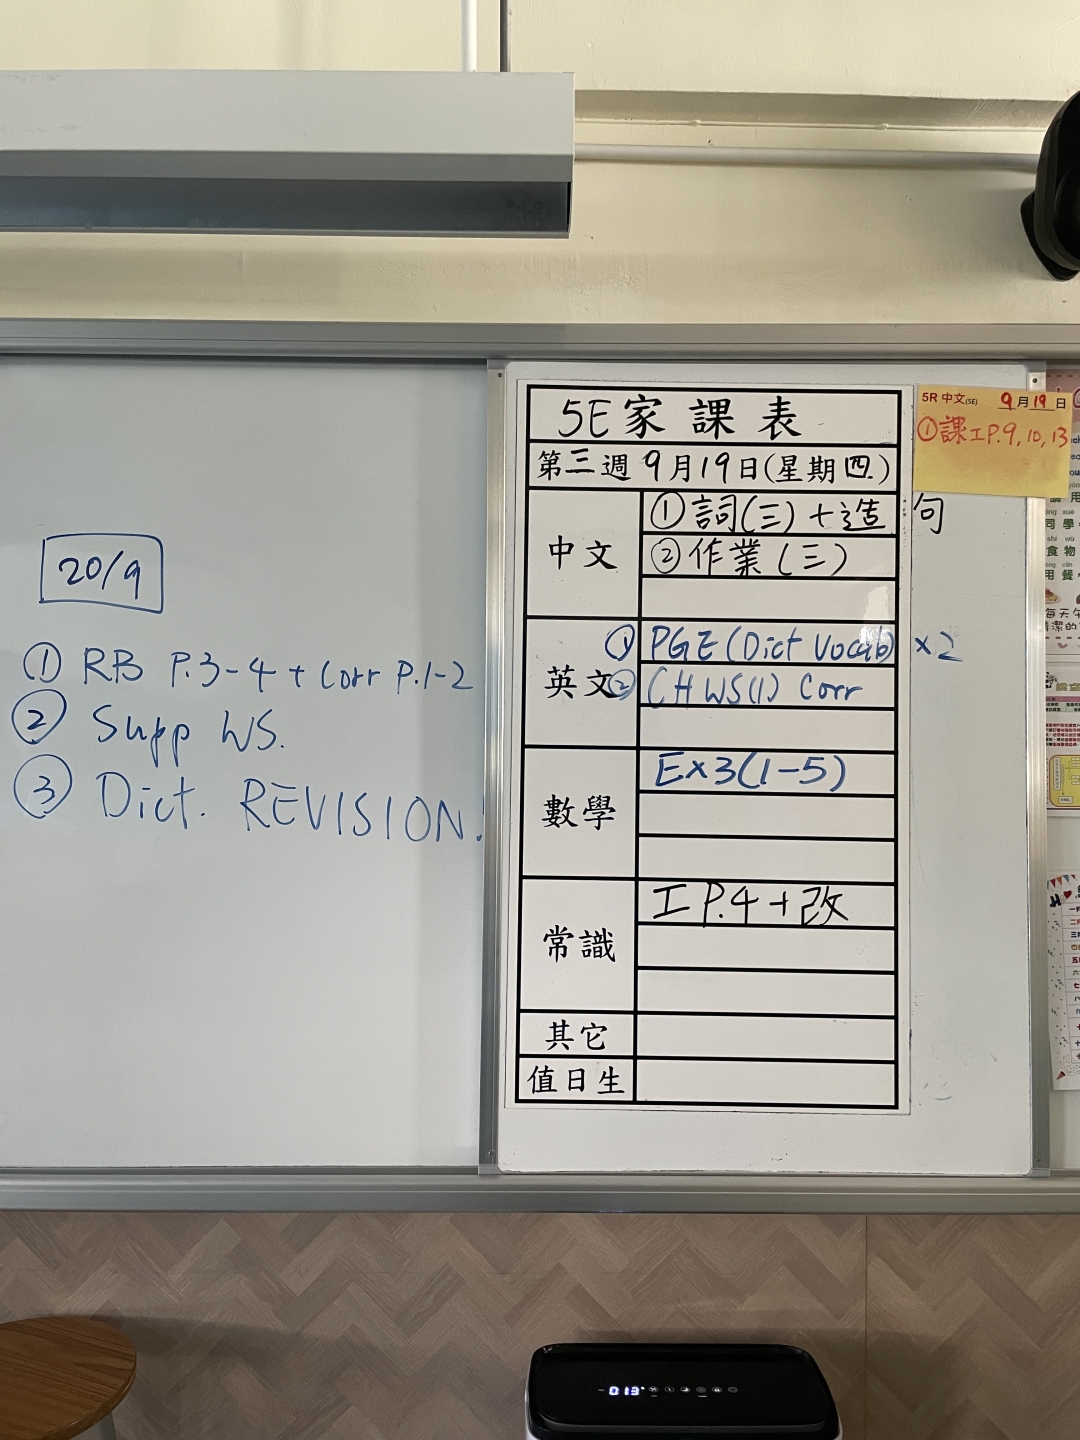 20/9
① RB P.3-4 + Corr P.1-2
② Supp WS.
③ Dict. REVISION!
5E家課表
第三週9月19日(星期四)
中文
①詞(三)+造句
②作業(三)
英文
① PGE(Dict Vocab) ×2
② CH WS(1) Corr
數學
Ex3(1-5)
常識
工P.4+改
其它
值日生
5R 中文(5E) 9月19日
①課工P.9,10,13
013